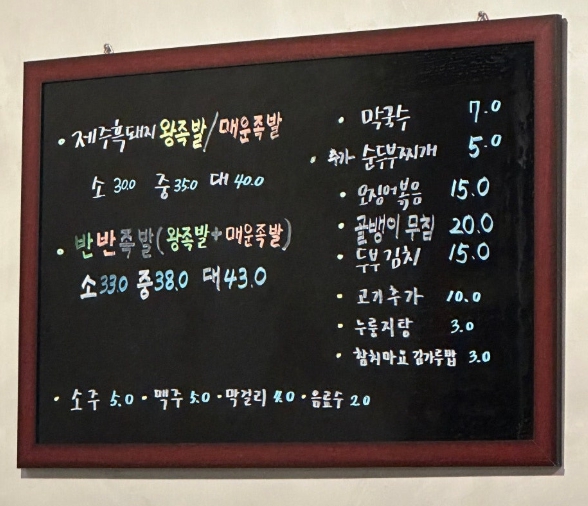 • 제주흑돼지 왕족발/매운족발
소 30.0 중 35.0 대 40.0
• 반반족발(왕족발+매운족발)
소 33.0 중 38.0 대 43.0
• 막국수 7.0
• 추가 순두부찌개 5.0
• 오징어볶음 15.0
• 골뱅이 무침 20.0
• 두부김치 15.0
• 고기추가 10.0
• 누룽지탕 3.0
• 참치마요 김가루밥 3.0
• 소주 5.0 • 맥주 5.0 • 막걸리 4.0 • 음료수 2.0